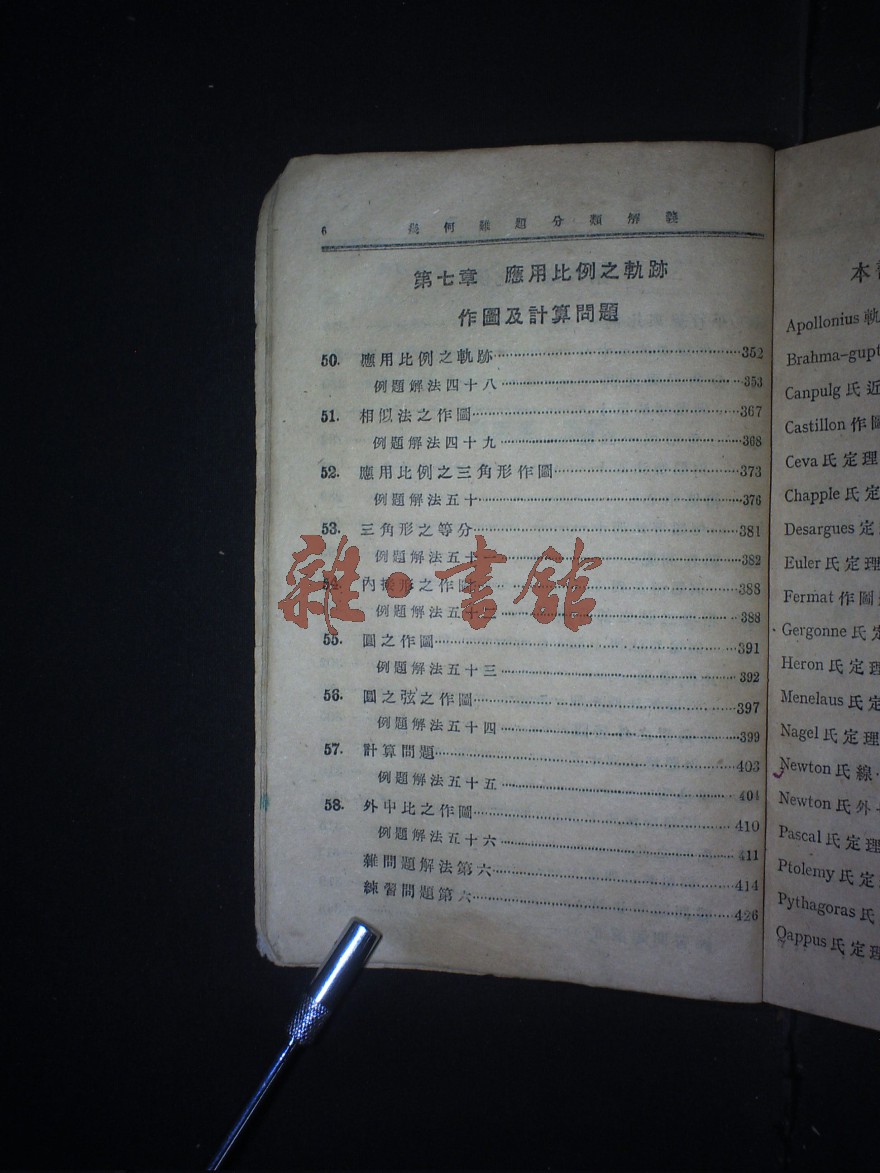 6 幾何難題分類解義
第七章 應用比例之軌跡
作圖及計算問題
50. 應用比例之軌跡 352
例題解法四十八 353
51. 相似法之作圖 367
例題解法四十九 368
52. 應用比例之三角形作圖 373
例題解法五十 376
53. 三角形之等分 381
例題解法五十一 382
54. 內接形之作圖 388
例題解法五十二 388
55. 圓之作圖 391
例題解法五十三 392
56. 圓之弦之作圖 397
例題解法五十四 399
57. 計算問題 403
例題解法五十五 404
58. 外中比之作圖 410
例題解法五十六 411
雜問題解法第六 414
練習問題第六 426
雜·書館
本
Apollonius 軌
Brahma-gupt
Canpulg 氏近
Castillon 作圖
Ceva 氏定理
Chapple 氏定
Desargues 定
Euler 氏定理
Fermat 作圖
Gergonne 氏定
Heron 氏定理
Menelaus 氏定
Nagel 氏定理
Newton 氏線
Newton 氏外
Pascal 氏定理
Ptolemy 氏定
Pythagoras 氏
Qappus 氏定理